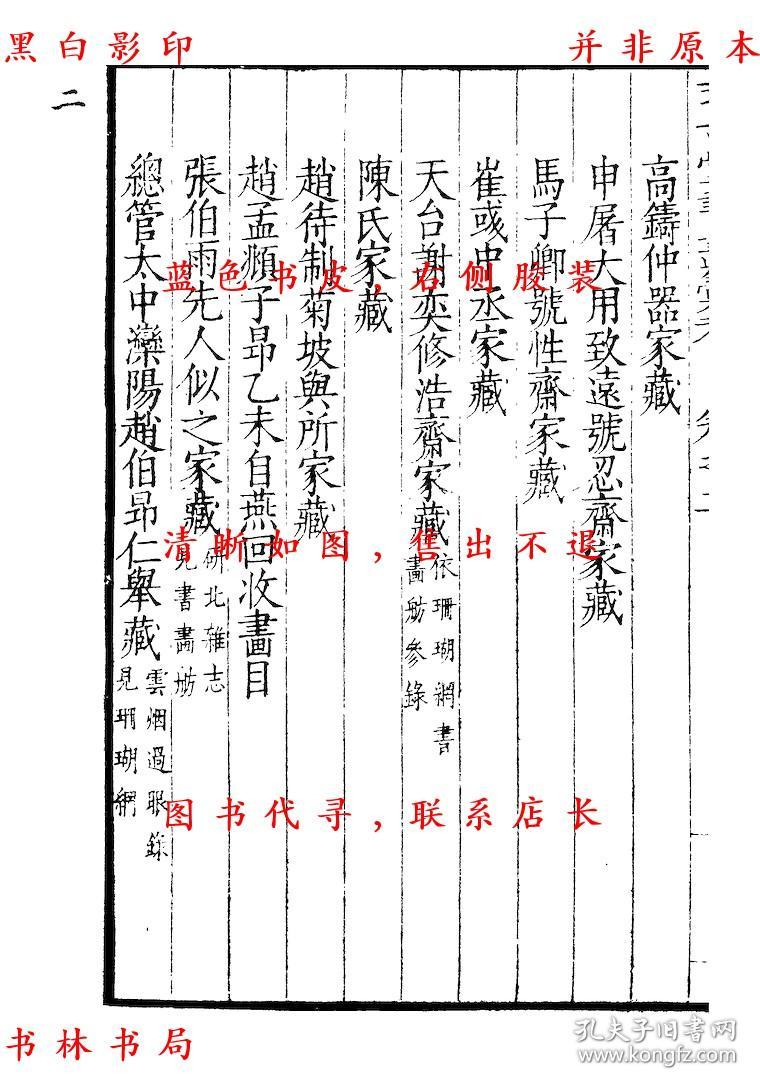 黑白影印
并非原本
二
高鑄仲器家藏
申屠大用致遠號忍齋家藏
馬子卿號性齋家藏
崔彧中丞家藏
天台謝奕修浩齋家藏
依珊瑚網書
畵舫參錄
陳氏家藏
趙待制菊坡與所家藏
趙孟頫子昂乙未自燕回收畫目
張伯雨先人似之家藏
研北雜志
見書畵舫
總管太中灤陽趙伯昂仁舉藏
雲烟過眼錄
見珊瑚網
蓝色书皮,右侧胶装
清晰如图,售出不退
图书代寻,联系店长
书林书局
孔夫子旧書网
www.kongfz.com